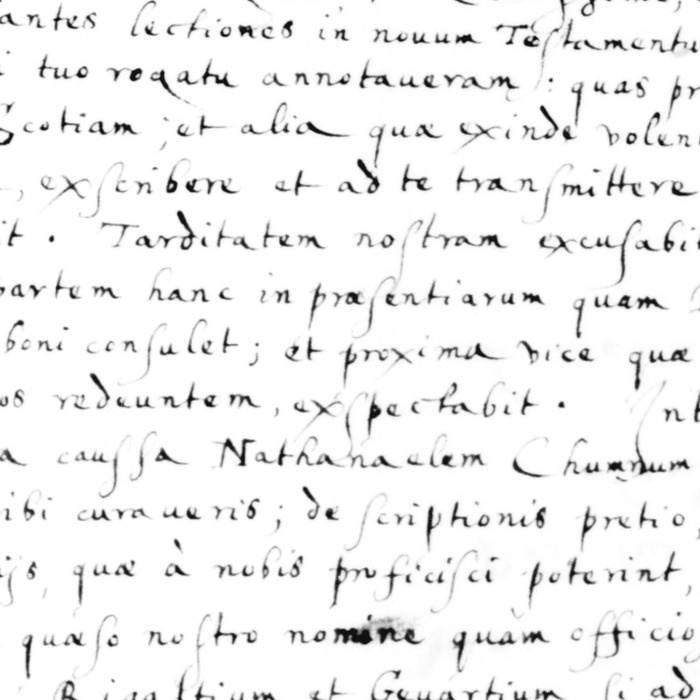 antes lectiones in nouum Testamentu
tuo rogatu annotaueram: quas pr
Scotiam; et alia quæ exinde volent
, exscribere et ad te transmittere
it. Tarditatem nostram excusabit
partem hanc in præsentiarum quam
boni consulet; et proxima vice quæ
os redeuntem, exspectabit. Int
a caussa Nathanaelem Chumnum
ibi curaueris; descriptionis pretio,
ijs, quæ à nobis proficisci poterint,
quæso nostro nomine quam officios
Rigaltium et Geuartium si ad